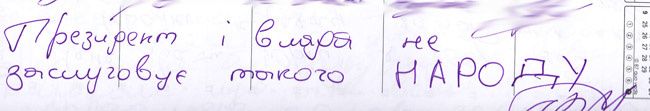 Президент і влада не
заслуговує такого НАРОДУ